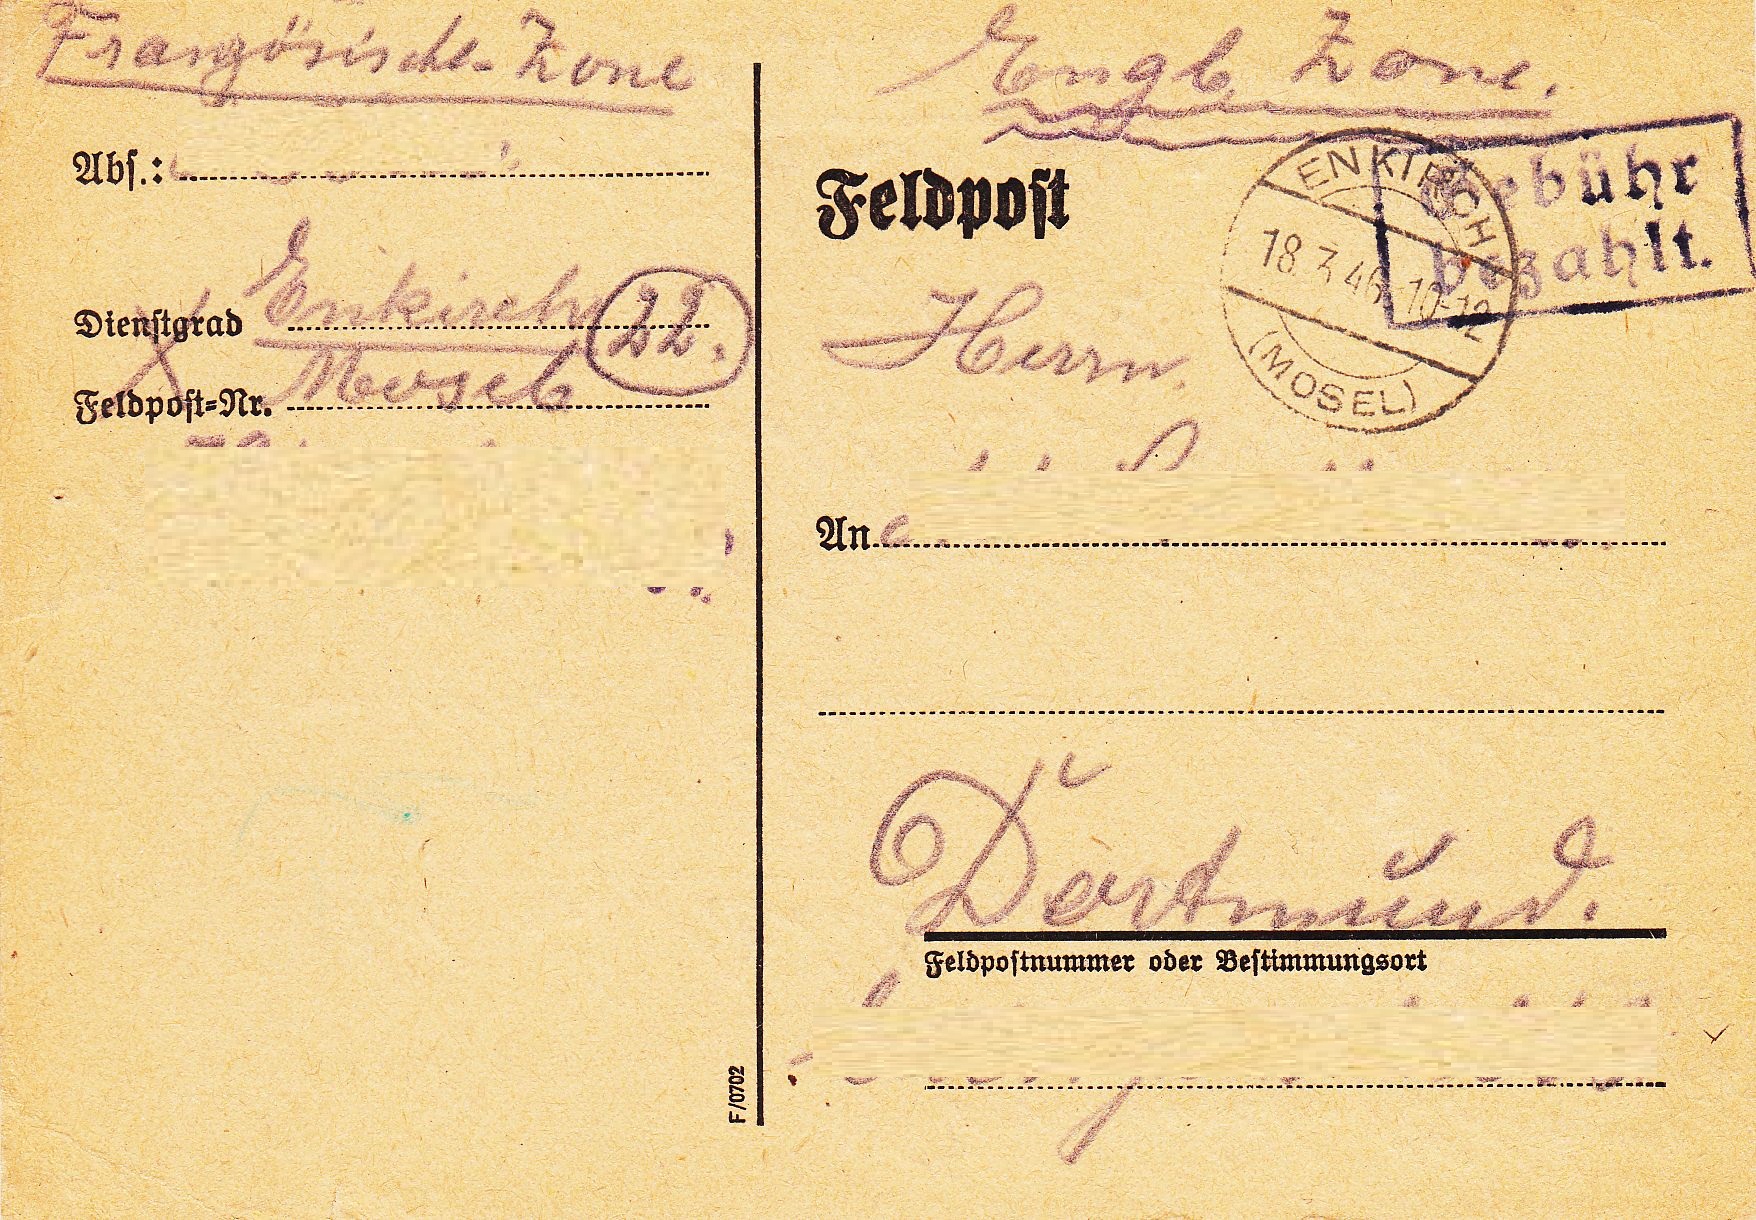 Französische Zone
Abs.:
Dienstgrad Enkirch 22.
Feldpost=Nr. Mosel
F/0702
Engl. Zone.
Feldpost
ENKIRCH
18.7.46-10-12
(MOSEL)
Gebühr
bezahlt.
Herrn.
An
Dortmund.
Feldpostnummer oder Bestimmungsort